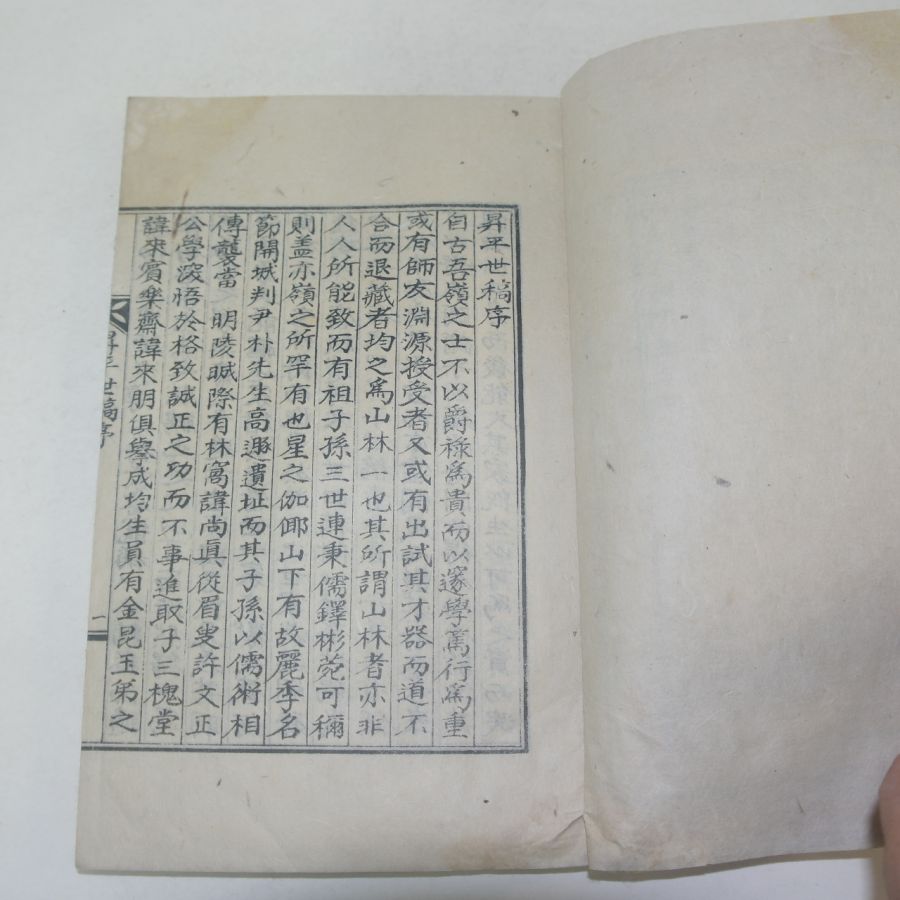 昇平世稿序
自古吾嶺之士不以爵祿爲貴而以邃學篤行爲重
或有師友淵源授受者又或有出試其才器而道不
合而退藏者均之爲山林一也其所謂山林者亦非
人人所能致而有祖子孫三世連秉儒鐸彬菀可稱
則盖亦嶺之所罕有也星之伽倻山下有故麗季名
節開城判尹朴先生高遯遺址而其子孫以儒術相
傳襲當 明陵晠際有林窩諱尚眞從眉叟許文正
公學深悟於格致誠正之功而不事進取子三槐堂
諱來賓樂齋諱來朋俱擧成均生員有金昆玉弟之
昇平世稿序
一